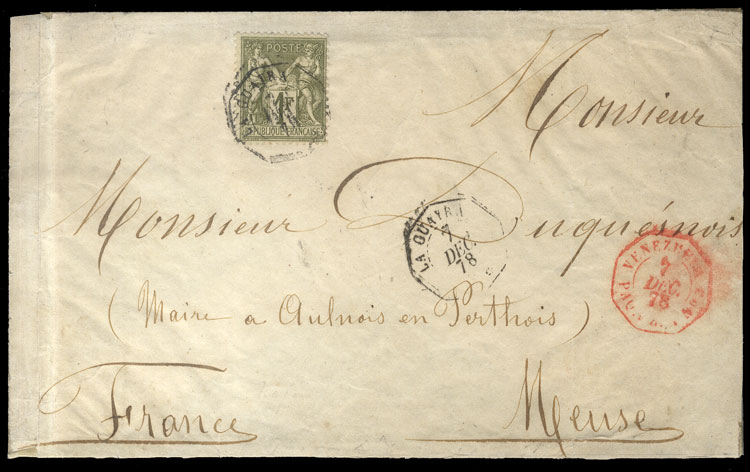 POSTE
1F
REPUBLIQUE FRANCAISE
Monsieur
Monsieur Duquésnois
LA GUAYRA
7
DEC.
78
VENEZUELA
7
DEC.
78
(Maire a Aulnois en Perthois)
France Meuse